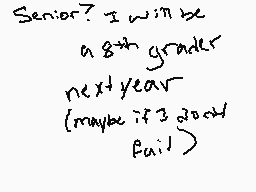 Senior? I will be
a 8th grader
next year
(maybe if I dont
fail)